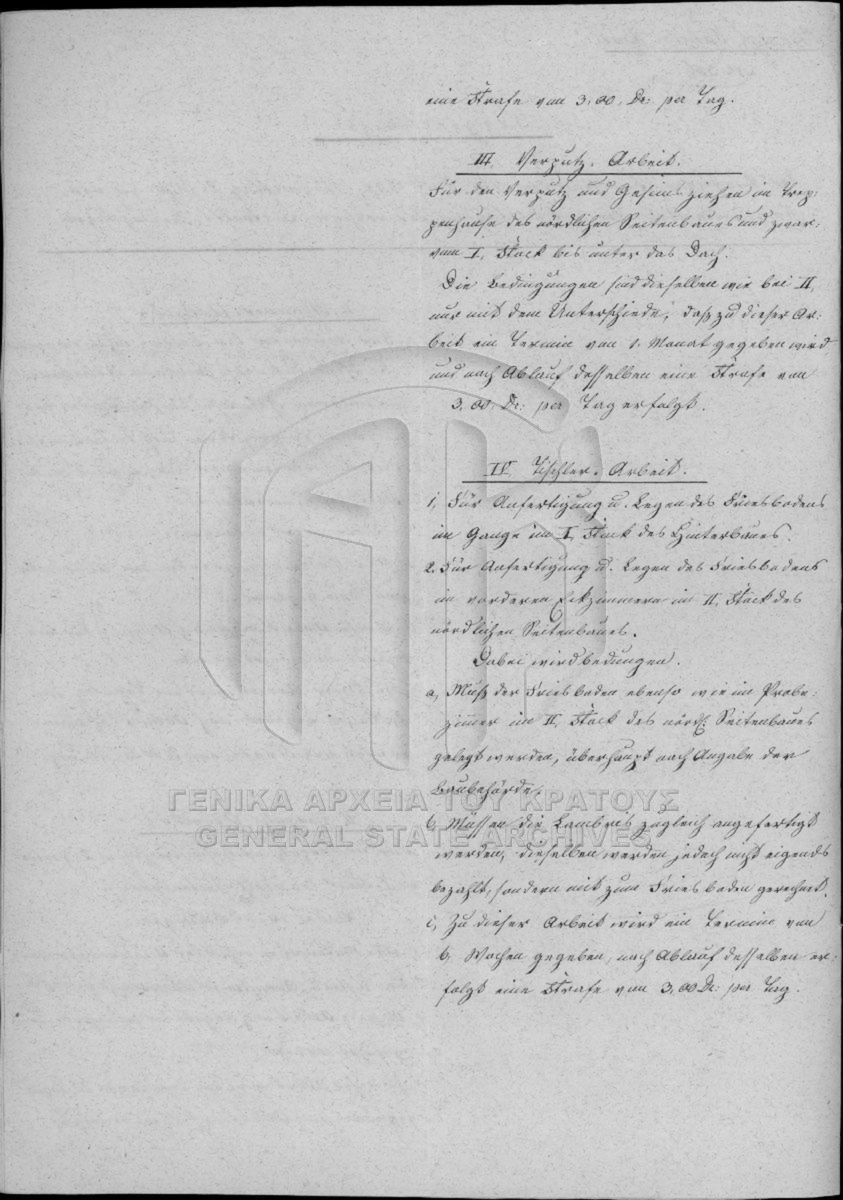 eine Strafe von 3,00, Dr: per Tag.
III, Verputz-Arbeit.
Für den Verputz und Gesims ziehen im Trep-
penhause des nördlichen Seitenbaues und zwar:
vom I, Stock bis unter das Dach.
Die Bedingungen sind dieselben wie bei II,
nur mit dem Unterschiede, daß zu dieser Ar-
beit ein Termin von 1, Monat gegeben wird
und nach Ablauf desselben eine Strafe von
3,00, Dr: per Tag erfolgt.
IV, Tischler-Arbeit.
1, Für Anfertigung u. Legen des Friesbodens
im Gange im I, Stock des Hinterbaues.
2. Für Anfertigung u. Legen des Friesbodens
im vorderen Eckzimmern im II, Stock des
nördlichen Seitenbaues.
Dabei wird bedungen.
a, Muß der Friesboden ebenso wie im Probe-
zimmer im II, Stock des nördl: Seitenbaues
gelegt werden, überhaupt nach Angabe der
Baubehörde.
ΓΕΝΙΚΑ ΑΡΧΕΙΑ ΤΟΥ ΚΡΑΤΟΥΣ
b, Müssen die Lambris zugleich angefertigt
GENERAL STATE ARCHIVES
werden, dieselben werden jedoch nicht eigends
bezahlt, sondern mit zum Friesboden gerechnet.
c, Zu dieser Arbeit wird ein Termin von
6, Wochen gegeben, nach Ablauf desselben er-
folgt eine Strafe von 3,00 Dr: per Tag.